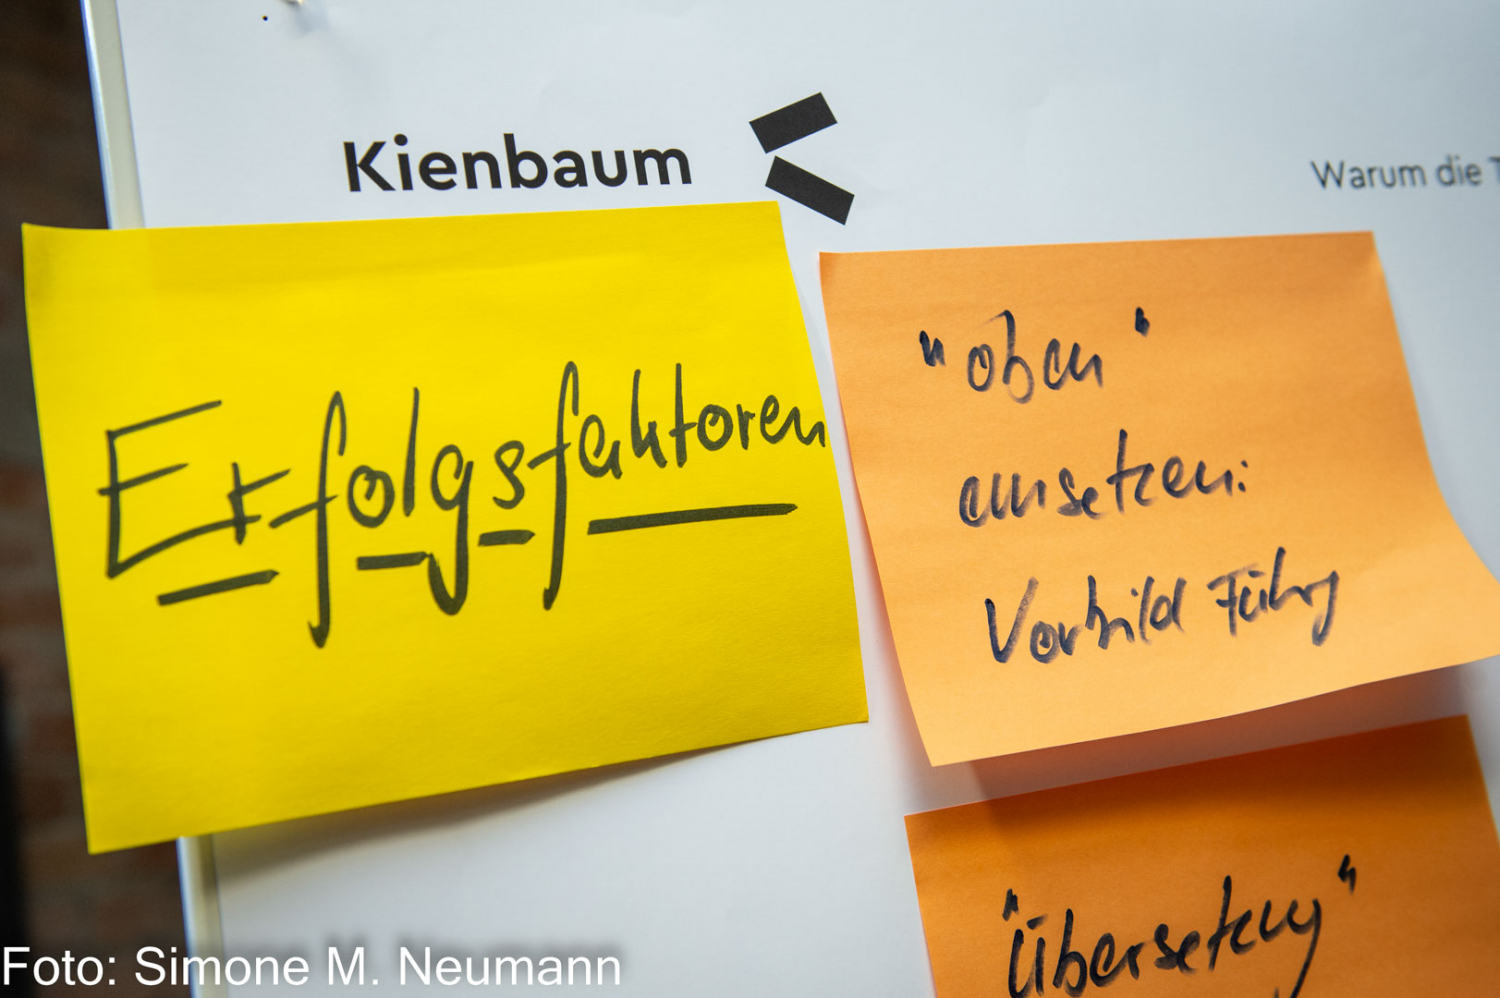 Kienbaum
Warum die T
Erfolgsfaktoren
"oben"
ansetzen:
Vorbild Führg
"Übersetzung"
Foto: Simone M. Neumann